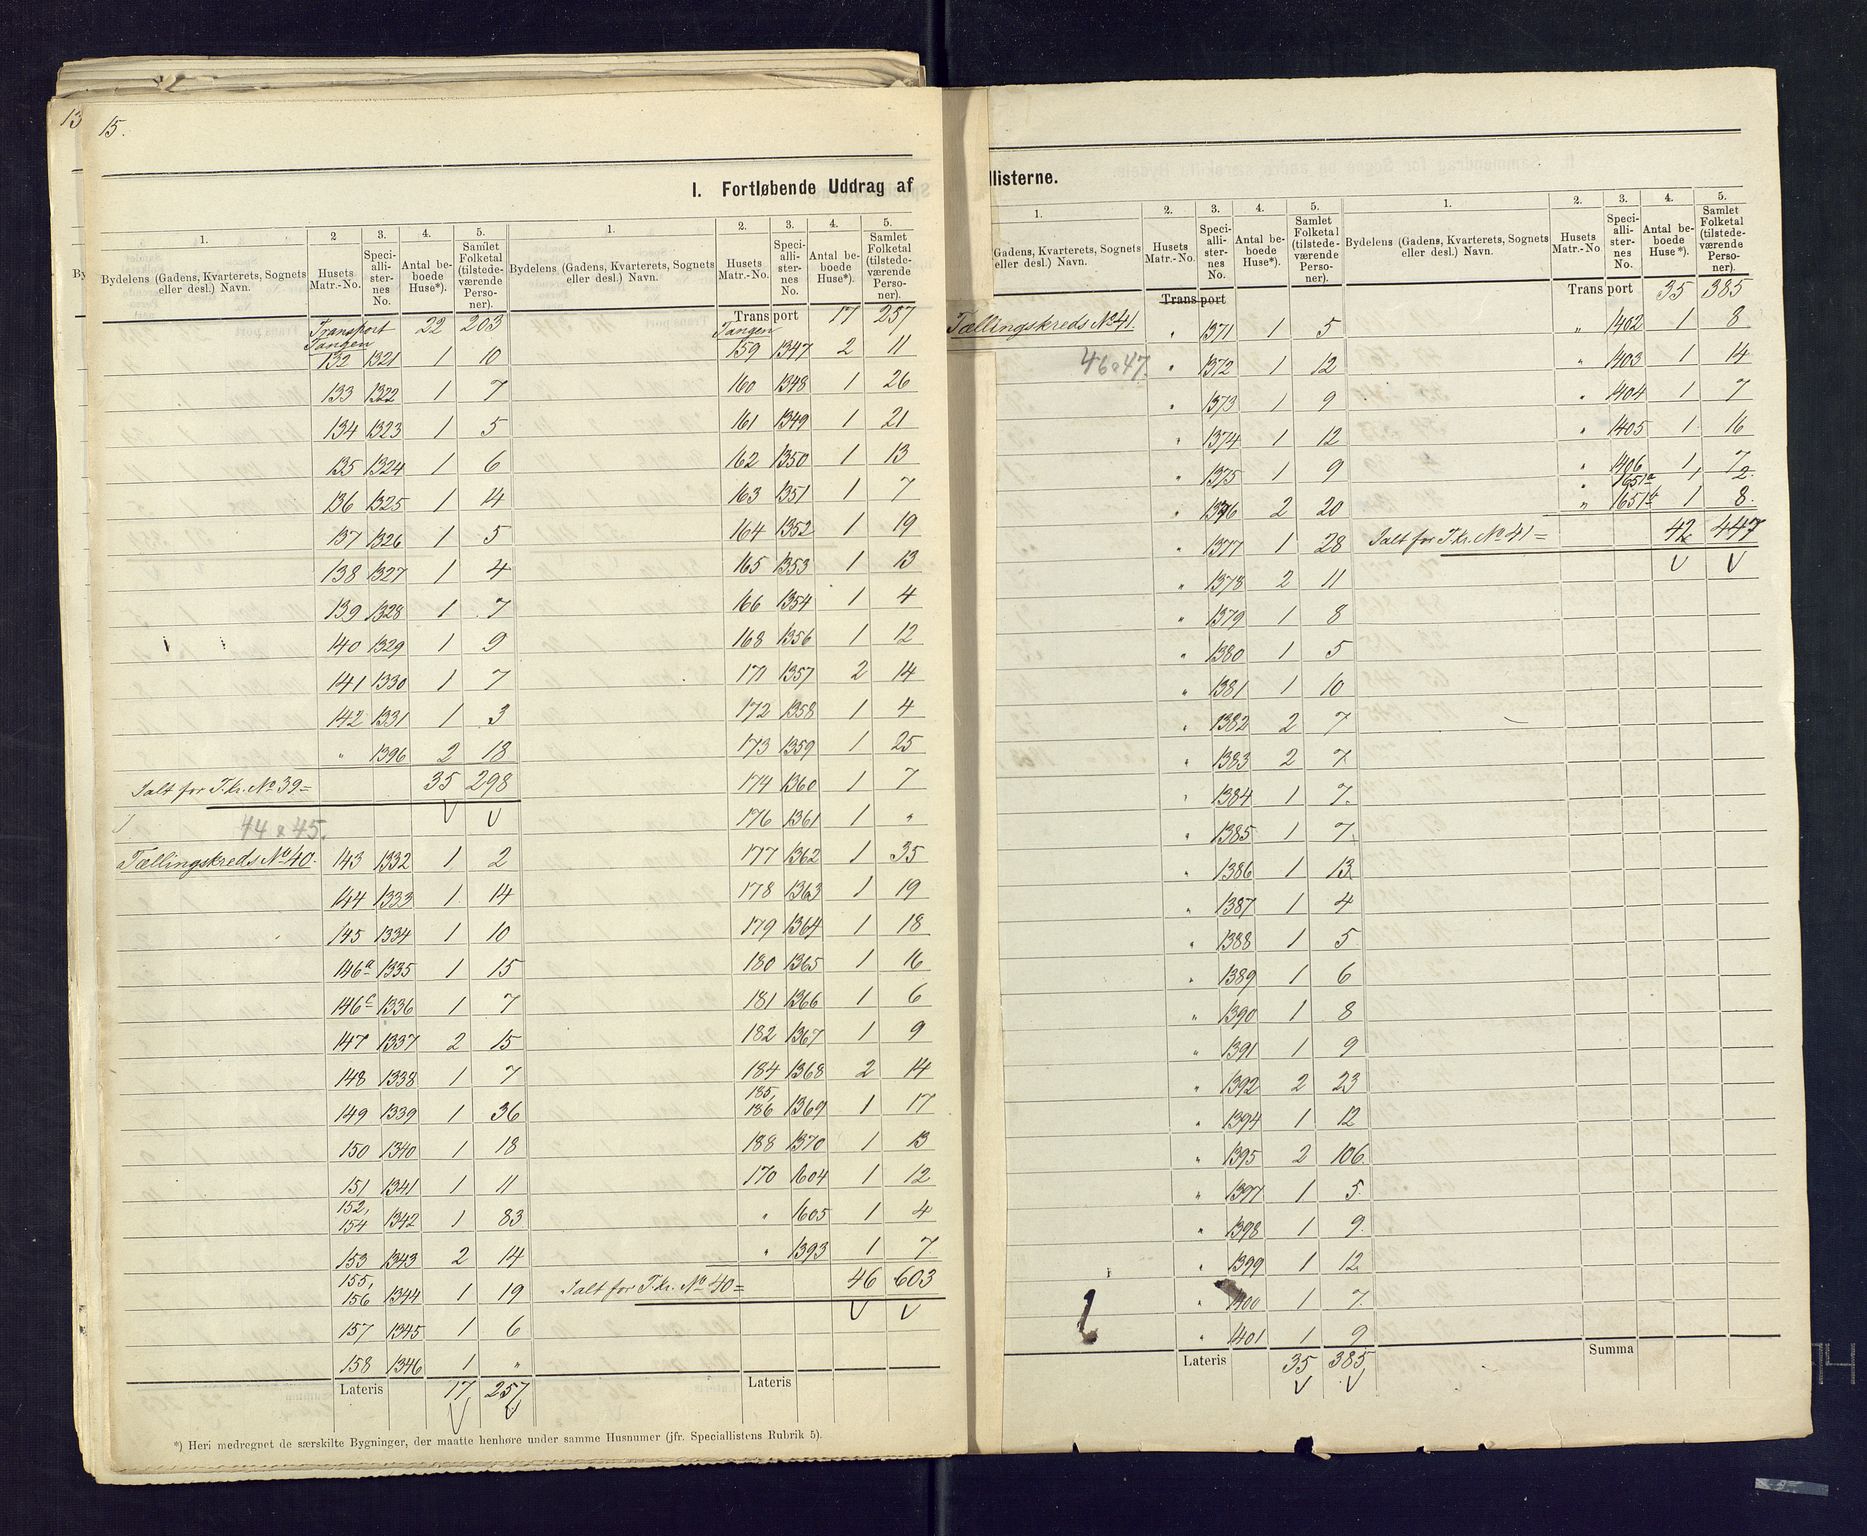 13
15.
I. Fortløbende Uddrag af
1.
2
3.
4.
5.
Bydelens (Gadens, Kvarterets, Sognets eller desl.) Navn.
Husets Matr.-No.
Speciallisternes No.
Antal beboede Huse*).
Samlet Folketal (tilstedeværende Personer).
Transport 22 203
Tangen
132 1321 1 10
133 1322 1 7
134 1323 1 5
135 1324 1 6
136 1325 1 14
137 1326 1 5
138 1327 1 4
139 1328 1 7
140 1329 1 9
141 1330 1 7
142 1331 1 3
" 1396 2 18
Ialt for T.kr. No 39 = 35 298
44 & 45.
Tællingskreds No 40. 143 1332 1 2
144 1333 1 14
145 1334 1 10
146a 1335 1 15
146c 1336 1 7
147 1337 2 15
148 1338 1 7
149 1339 1 36
150 1340 1 18
151 1341 1 11
152, 154 1342 1 83
153 1343 2 14
155, 156 1344 1 19
157 1345 1 6
158 1346 1 "
Lateris 17 257
1.
2.
3.
4.
5.
Bydelens (Gadens, Kvarterets, Sognets eller desl.) Navn.
Husets Matr.-No.
Speciallisternes No.
Antal beboede Huse*).
Samlet Folketal (tilstedeværende Personer).
Transport 17 257
Tangen
159 1347 2 11
160 1348 1 26
161 1349 1 21
162 1350 1 13
163 1351 1 7
164 1352 1 19
165 1353 1 13
166 1354 1 4
168 1356 1 12
171 1357 2 14
172 1358 1 4
173 1359 1 25
174 1360 1 7
176 1361 1 "
177 1362 1 35
178 1363 1 19
179 1364 1 18
180 1365 1 16
181 1366 1 6
182 1367 1 9
184 1368 2 14
185, 186 1369 1 17
188 1370 1 13
170 1604 1 12
" 1605 1 4
" 1393 1 7
Ialt for T.kr. No 40 = 46 603
Lateris
*) Heri medregnet de særskilte Bygninger, der maatte henhøre under samme Husnumer (jfr. Speciallistens Rubrik 5).
llisterne.
1.
2.
3.
4.
5.
(Gadens, Kvarterets, Sognets eller desl.) Navn.
Husets Matr.-No.
Speciallisternes No.
Antal beboede Huse*).
Samlet Folketal (tilstedeværende Personer).
Transport
Tællingskreds No 41. " 1371 1 5
46 & 47. " 1372 1 12
" 1373 1 9
" 1374 1 12
" 1375 1 9
" 1376 2 20
" 1377 1 28
" 1378 2 11
" 1379 1 8
" 1380 1 5
" 1381 1 10
" 1382 2 7
" 1383 2 7
" 1384 1 7
" 1385 1 7
" 1386 1 13
" 1387 1 4
" 1388 1 5
" 1389 1 6
" 1390 1 8
" 1391 1 9
" 1392 2 23
" 1394 1 12
" 1395 2 106
" 1397 1 5
" 1398 1 9
" 1399 1 12
" 1400 1 7
" 1401 1 9
Lateris 35 385
1.
2.
3.
4.
5.
Bydelens (Gadens, Kvarterets, Sognets eller desl.) Navn.
Husets Matr.-No.
Speciallisternes No.
Antal beboede Huse*).
Samlet Folketal (tilstedeværende Personer).
Transport 35 385
" 1402 1 8
" 1403 1 14
" 1404 1 7
" 1405 1 16
" 1406 1 7
" 1651a 1 2
" 1651b 1 8
Ialt for T.kr. No 41 = 42 447
Summa